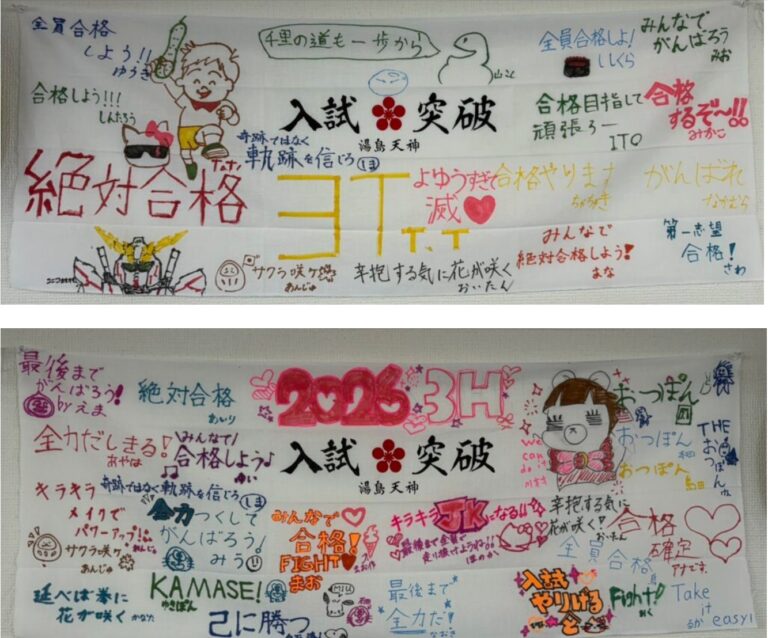 全員合格
しよう!!
ゆうき
千里の道も一歩から
全員合格しよ!
しくら
みんなで
がんばろう
みお
合格しよう!!!
しんたろう
入試 突破
湯島天神
合格目指して
頑張ろー
ITO
合格
するぞ〜!!
奇跡ではなく
軌跡を信じろ
絶対合格
3T
T.T
よゆうすぎて
滅
合格やります
がんばれ
なかむら
みんなで
絶対合格しよう!
まな
第一志望
合格!
さわ
サクラ咲ケ
あんじゅ
辛抱する気に花が咲く
おいたん
最後まで
がんばろう!
byえま
絶対合格
2026 3H
おつぽん
おつぽん
おつぽん
THE
おつぽん
全力だしきる!
あやは
みんなで!
合格しよう♪
ゆい
入試 突破
湯島天神
We
can
do it
キラキラ
メイクで
パワーアップ!
奇跡ではなく軌跡を信じろ
サクラ咲ケ
あんじゅ
全力つくして
がんばろう!
みう
みんなで
合格!
FIGHT
まお
キラキラJKになる!!
最後まで全員で
走り抜けようね!!
ほのか
辛抱する気に
花が咲く!?
おいたん
合格
確定
アナです.
全員合格
延べば拳に
花が咲く
かなた
KAMASE!
ゆきぽん
己に勝つ
MIU
最後まで
全力だ!
なおき
入試
やりとげる
ぞ
Fight!
Take
it
easy!